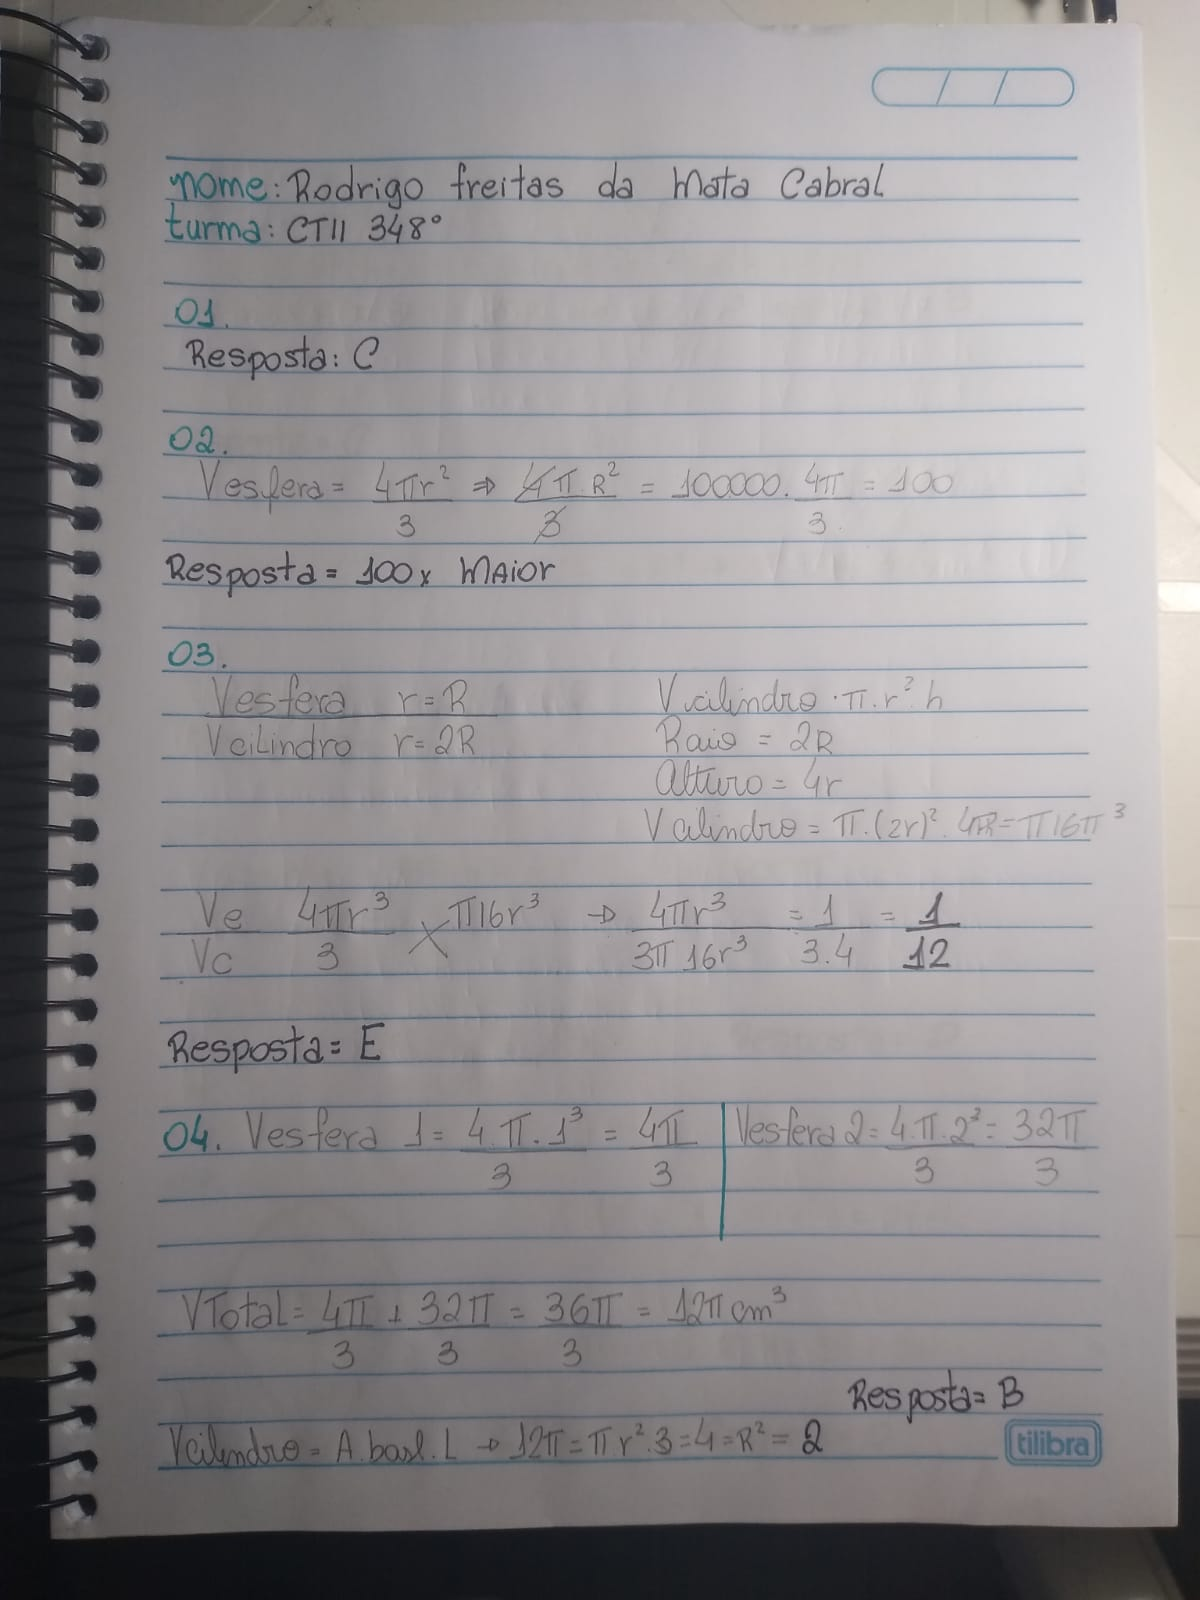 nome: Rodrigo freitas da Mata Cabral
turma: CTII 348°
01.
Resposta: C
02.
Vesfera = 4πr²/3 ⇒ 4π.R²/3 = 100000. 4π/3 = 100
Resposta = 100x MAior
03.
Vesfera r=R
Vcilindro r=2R
Vcilindro . π.r².h
Raio = 2R
Alturo = 4r
Vcilindro = π.(2r)². 4πR = π16π³
Ve/Vc 4πr³/3 × π16r³ → 4πr³/3π16r³ = 1/3.4 = 1/12
Resposta = E
04. Vesfera 1 = 4.π.1³/3 = 4π/3 | Vesfera 2 = 4.π.2³/3 = 32π/3
VTotal = 4π/3 + 32π/3 = 36π/3 = 12π cm³
Resposta = B
Vcilindro = A.basl.L → 12π = π r².3 = 4 = R² = 2
tilibra